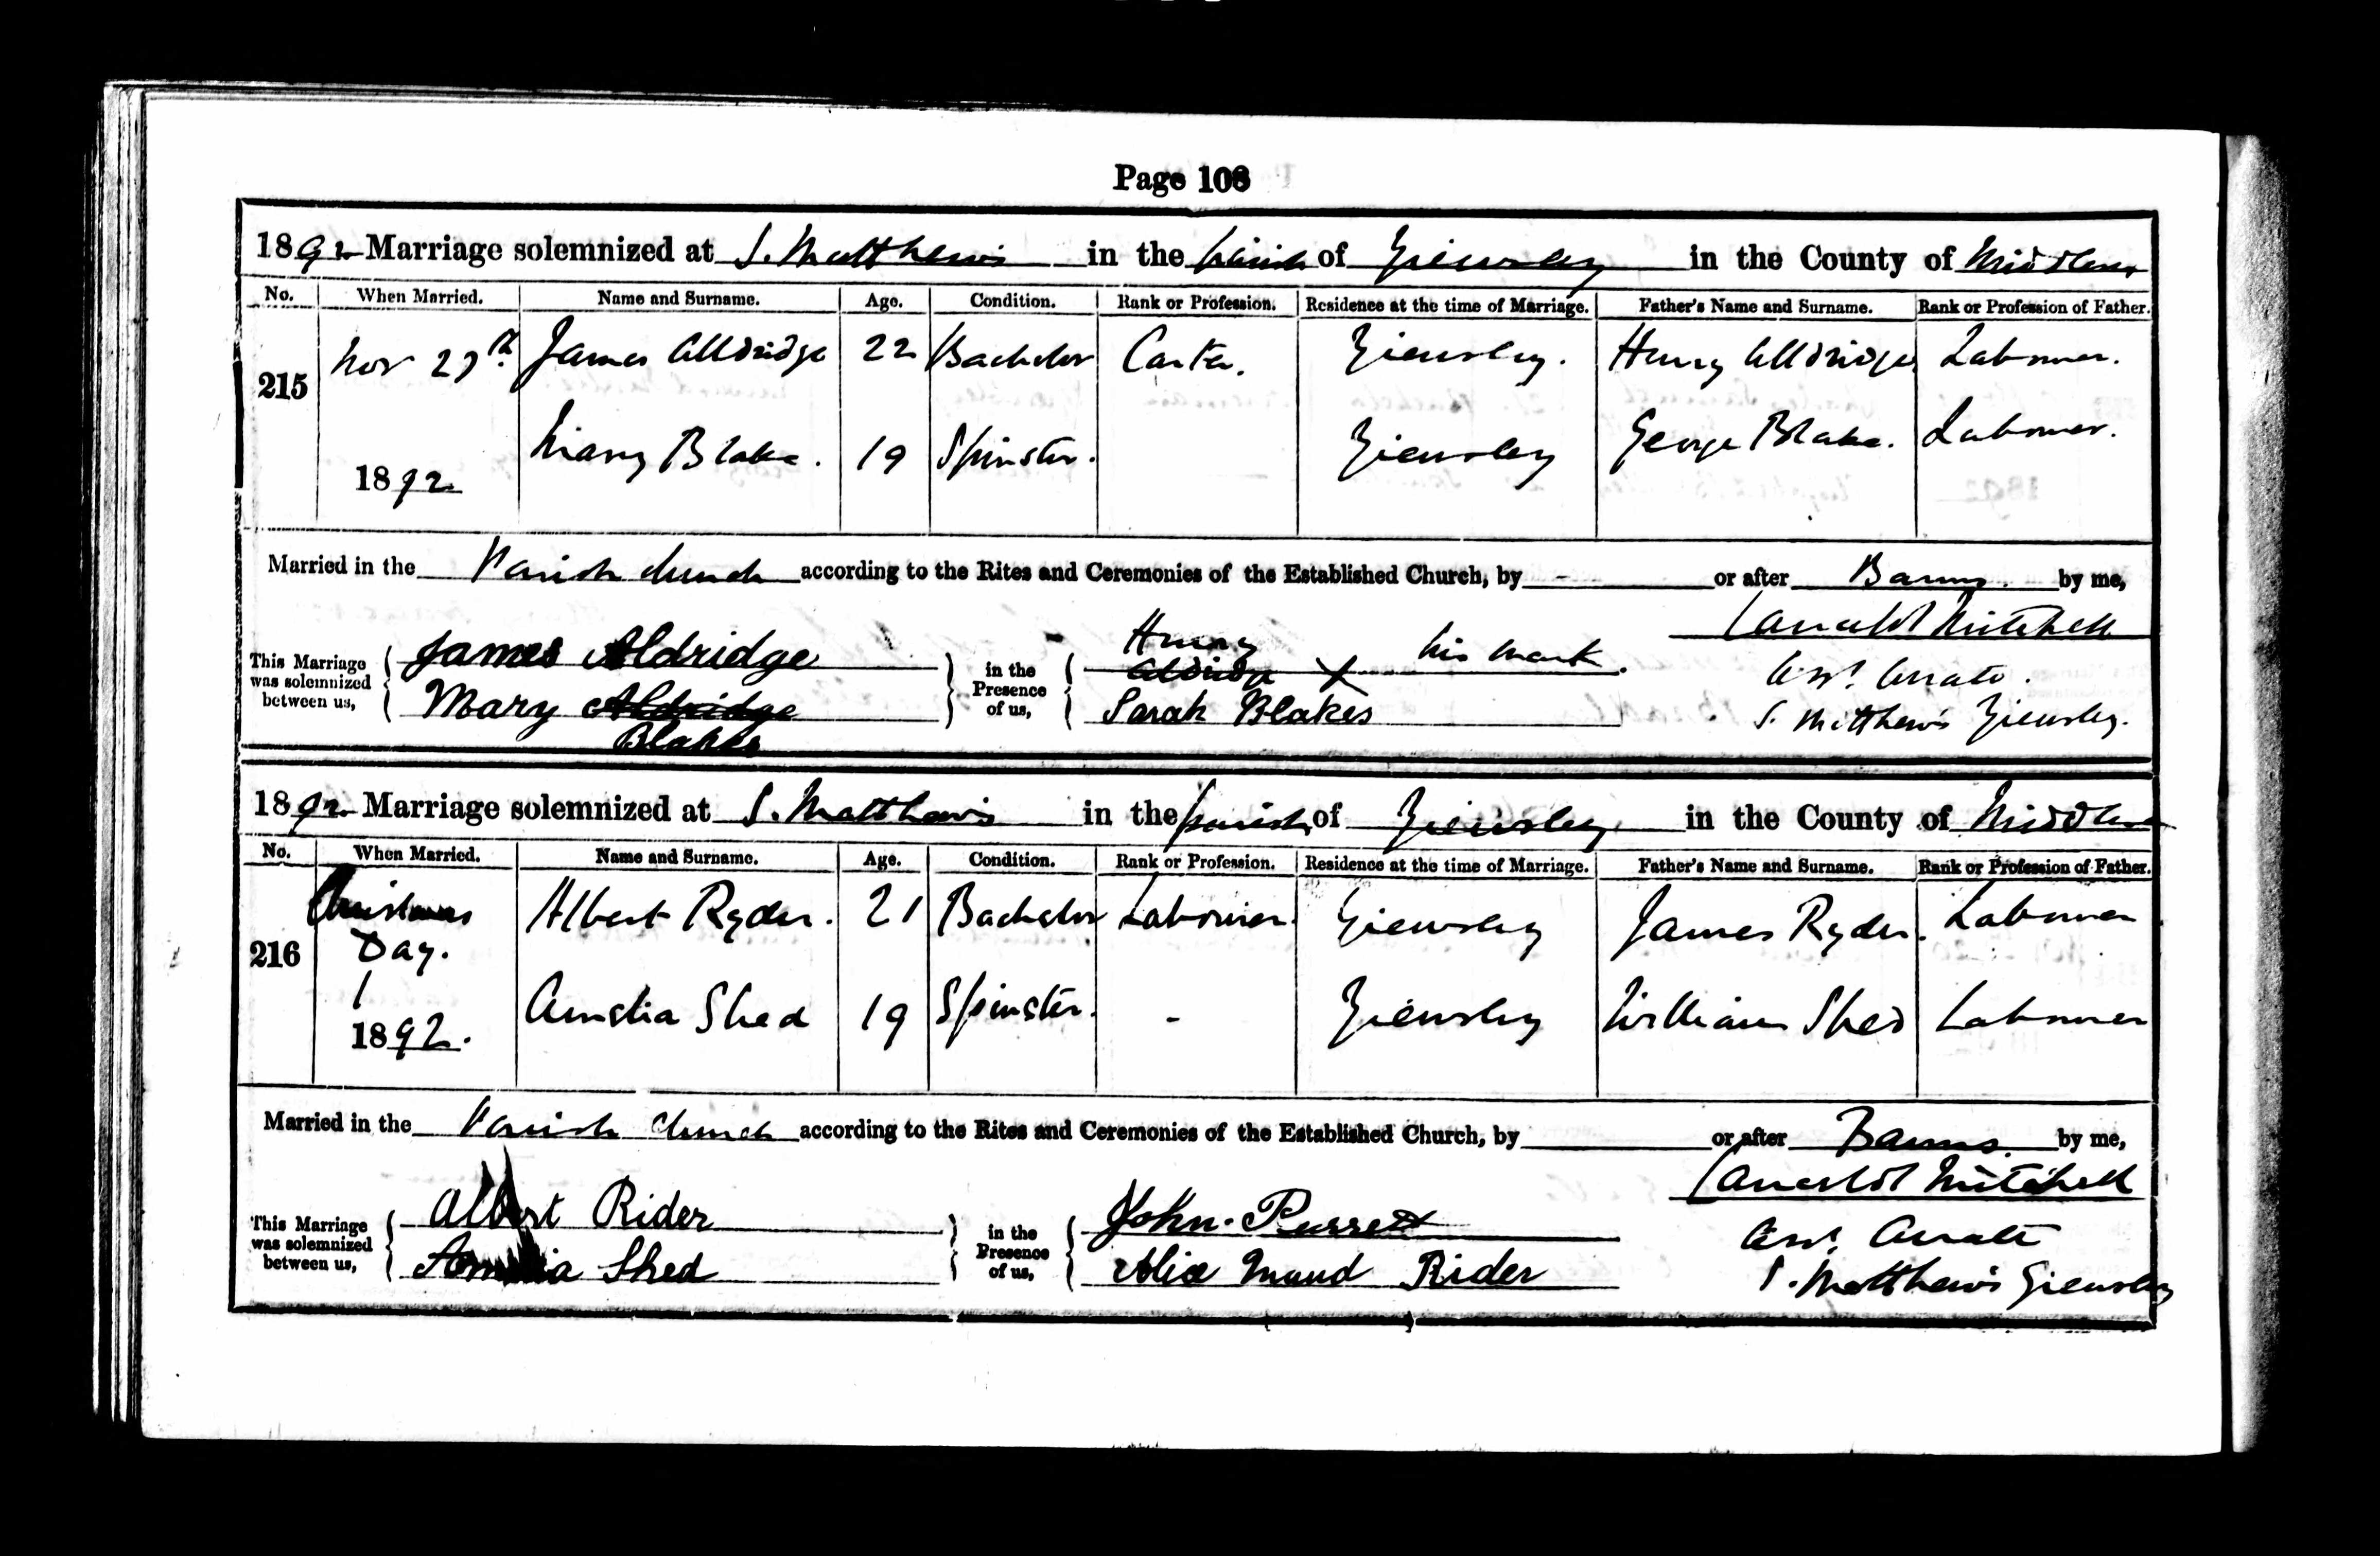 Page 108
1892 Marriage solemnized at S. Matthews in the parish of Yiewsley in the County of Middlesex
No. When Married. Name and Surname. Age. Condition. Rank or Profession. Residence at the time of Marriage. Father's Name and Surname. Rank or Profession of Father.
215 Nov 27th James Alldridge 22 Bachelor Carter. Yiewsley. Henry Alldridge Labourer.
1892 Mary Blake. 19 Spinster. Yiewsley George Blake. Labourer.
Married in the Parish Church according to the Rites and Ceremonies of the Established Church, by - or after Banns. by me,
This Marriage was solemnized between us, James Aldridge in the Presence of us, Henry Mitchell
Mary Aldridge X his mark.
Blakes Sarah Blakes
S. Matthew's Yiewsley.
1892 Marriage solemnized at S. Matthew's in the parish of Yiewsley in the County of Middlesex
No. When Married. Name and Surname. Age. Condition. Rank or Profession. Residence at the time of Marriage. Father's Name and Surname. Rank or Profession of Father.
216 Christmas Day. Albert Ryder. 21 Bachelor Labourer. Yiewsley James Ryder. Labourer
1892. Amelia Shed 19 Spinster. - Yiewsley William Shed Labourer
Married in the Parish Church according to the Rites and Ceremonies of the Established Church, by or after Banns. by me,
This Marriage was solemnized between us, Albert Rider in the Presence of us, John. Mitchell
Amelia Shed Alice Maud Rider
S. Matthew's Yiewsley